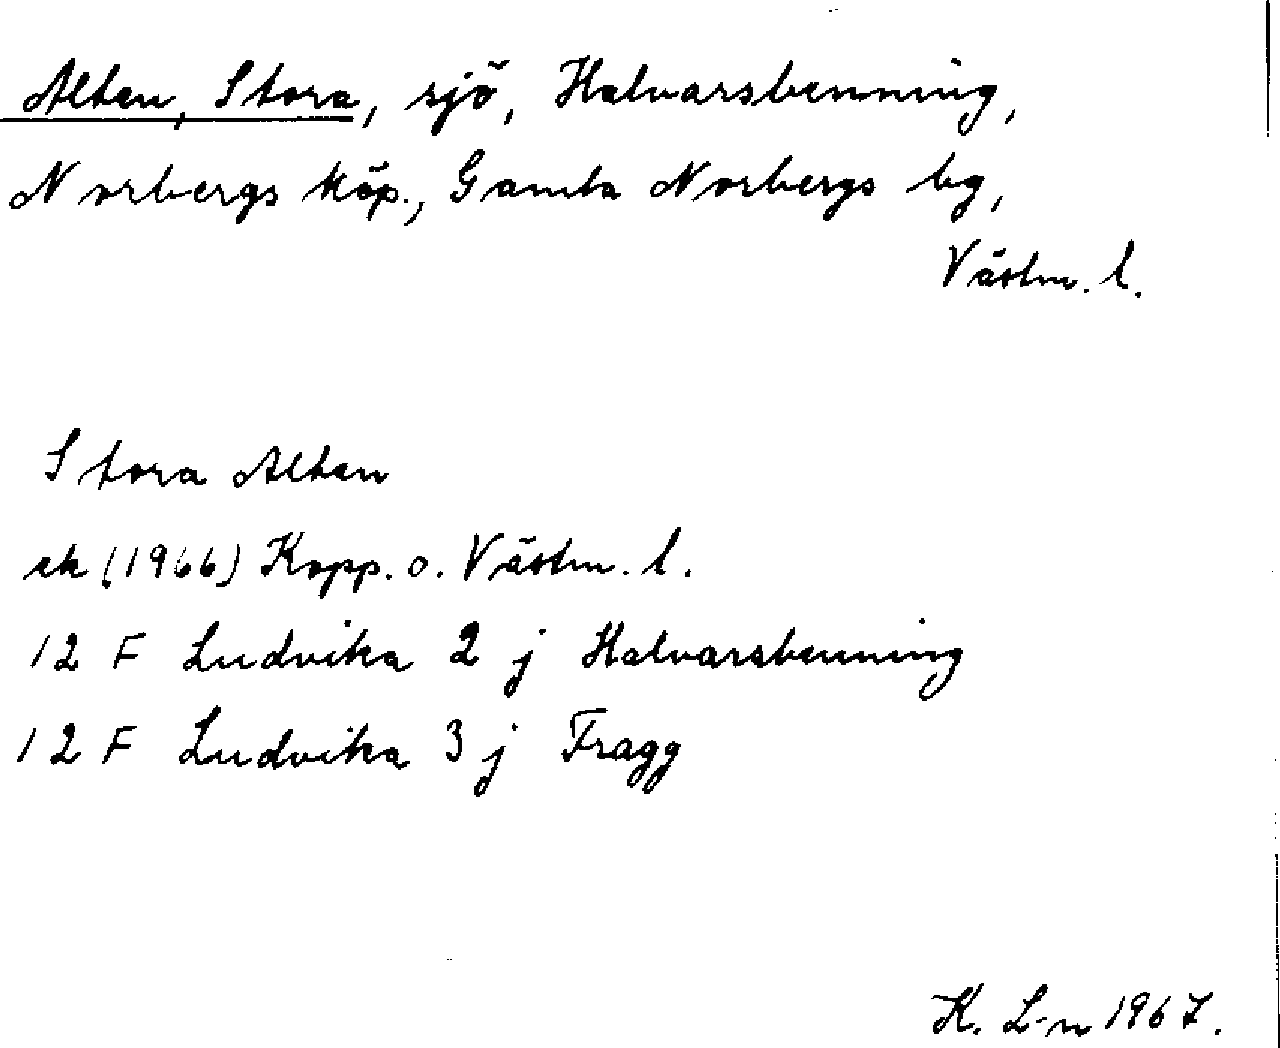 Alten, Stora, sjö, Halvarsbenning,
Norbergs köp., Gamla Norbergs bg,
Västm. l.
Stora Alten
ek (1966) Kopp. o. Västm. l.
12 F Ludvika 2 j Halvarsbenning
12 F Ludvika 3 j Fragg
K. L-n 1967.